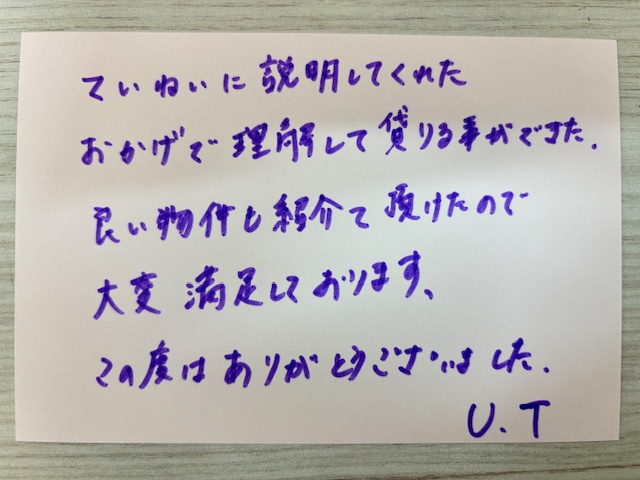 ていねいに説明してくれた
おかげで理解して貸りる事ができた.
良い物件も紹介て頂けたので
大変満足しております、
この度はありがとうございました.
U.T